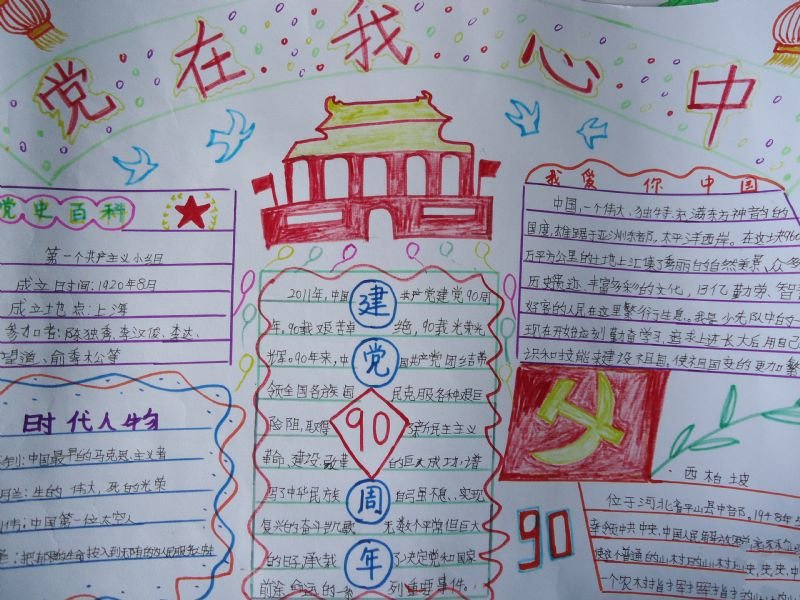 党在我心中
党史百科
第一个共产主义小组
成立日时间:1920年8月
成立地点:上海
参加者:陈独秀、李汉俊、李达、
望道、俞秀松等
时代人物
中国最早的马克思主义者
生的伟大,死的光荣
中国第一位太空人
2011年,中国共产党建党90周
年,90载艰苦卓绝,90载光荣光
辉。90年来,中国共产党团结带
领全国各族国民克服各种艰巨
险阻,取得了新民主主义
革命、建设、改革的巨大成功,谱
写了中华民族自弓虽不息、实现
复兴的奋斗
无数个平常但巨大
的日子,承载了决定党和国家
前途命运的一系列重要事件。
建
党
90
周
年
我爱你中国
中国,一个伟大、独特、充满东方神韵的
国度,雄踞于亚洲东部,太平洋西岸。在这块960
万平方公里的土地上汇集了秀丽自然美景、众多
历史遗迹、丰富多彩的文化,13亿勤劳、智
好客的人民在这里繁衍生息。我是小先队中的一
现在开始应刻勤奋学习,追求上进长大后用自己
识和技能来建设祖国。使祖国变的更加繁
90
西柏坡
位于河北省平山县中部。1948年
这个普通的山村
一个农村指挥